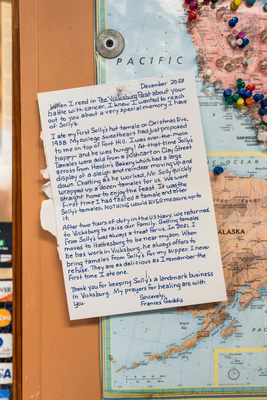 December 2023
When I read in The Vicksburg Post about your
battle with cancer, I knew I wanted to reach
out to you about a very special memory I have
of Solly's.
I ate my first Solly's hot tamale on Christmas Eve,
1958. My college sweetheart had just proposed
to me on top of Fort Hill. I was over-the-moon
happy- and he was hungry! At that time Solly's
Tamales were sold from a pushcart on Clay Street
across from Hardin's Bakery which had a large
display of a sleigh and reindeer moving up and
down. Chatting as he worked, Mr. Solly quickly
wrapped up a dozen tamales for us. We went
straight home to enjoy the feast. It was the
first time I had tasted a tamale and after
Solly's tamales, NOTHING could EVER measure up to
it.
After two tours of duty in the US Navy, we returned
to Vicksburg to raise our family. Getting tamales
from Solly's was always a treat for us. In 2021, I
moved to Hattiesburg to be near my son. When
he has work in Vicksburg, he always offers to
bring tamales from Solly's for my supper. I never
refuse. They are as delicious as I remember the
first time I ate one.
Thank you for keeping Solly's a landmark business
in Vicksburg. My prayers for healing are with
you.
Sincerely,
Frances Geddis
ALASKA